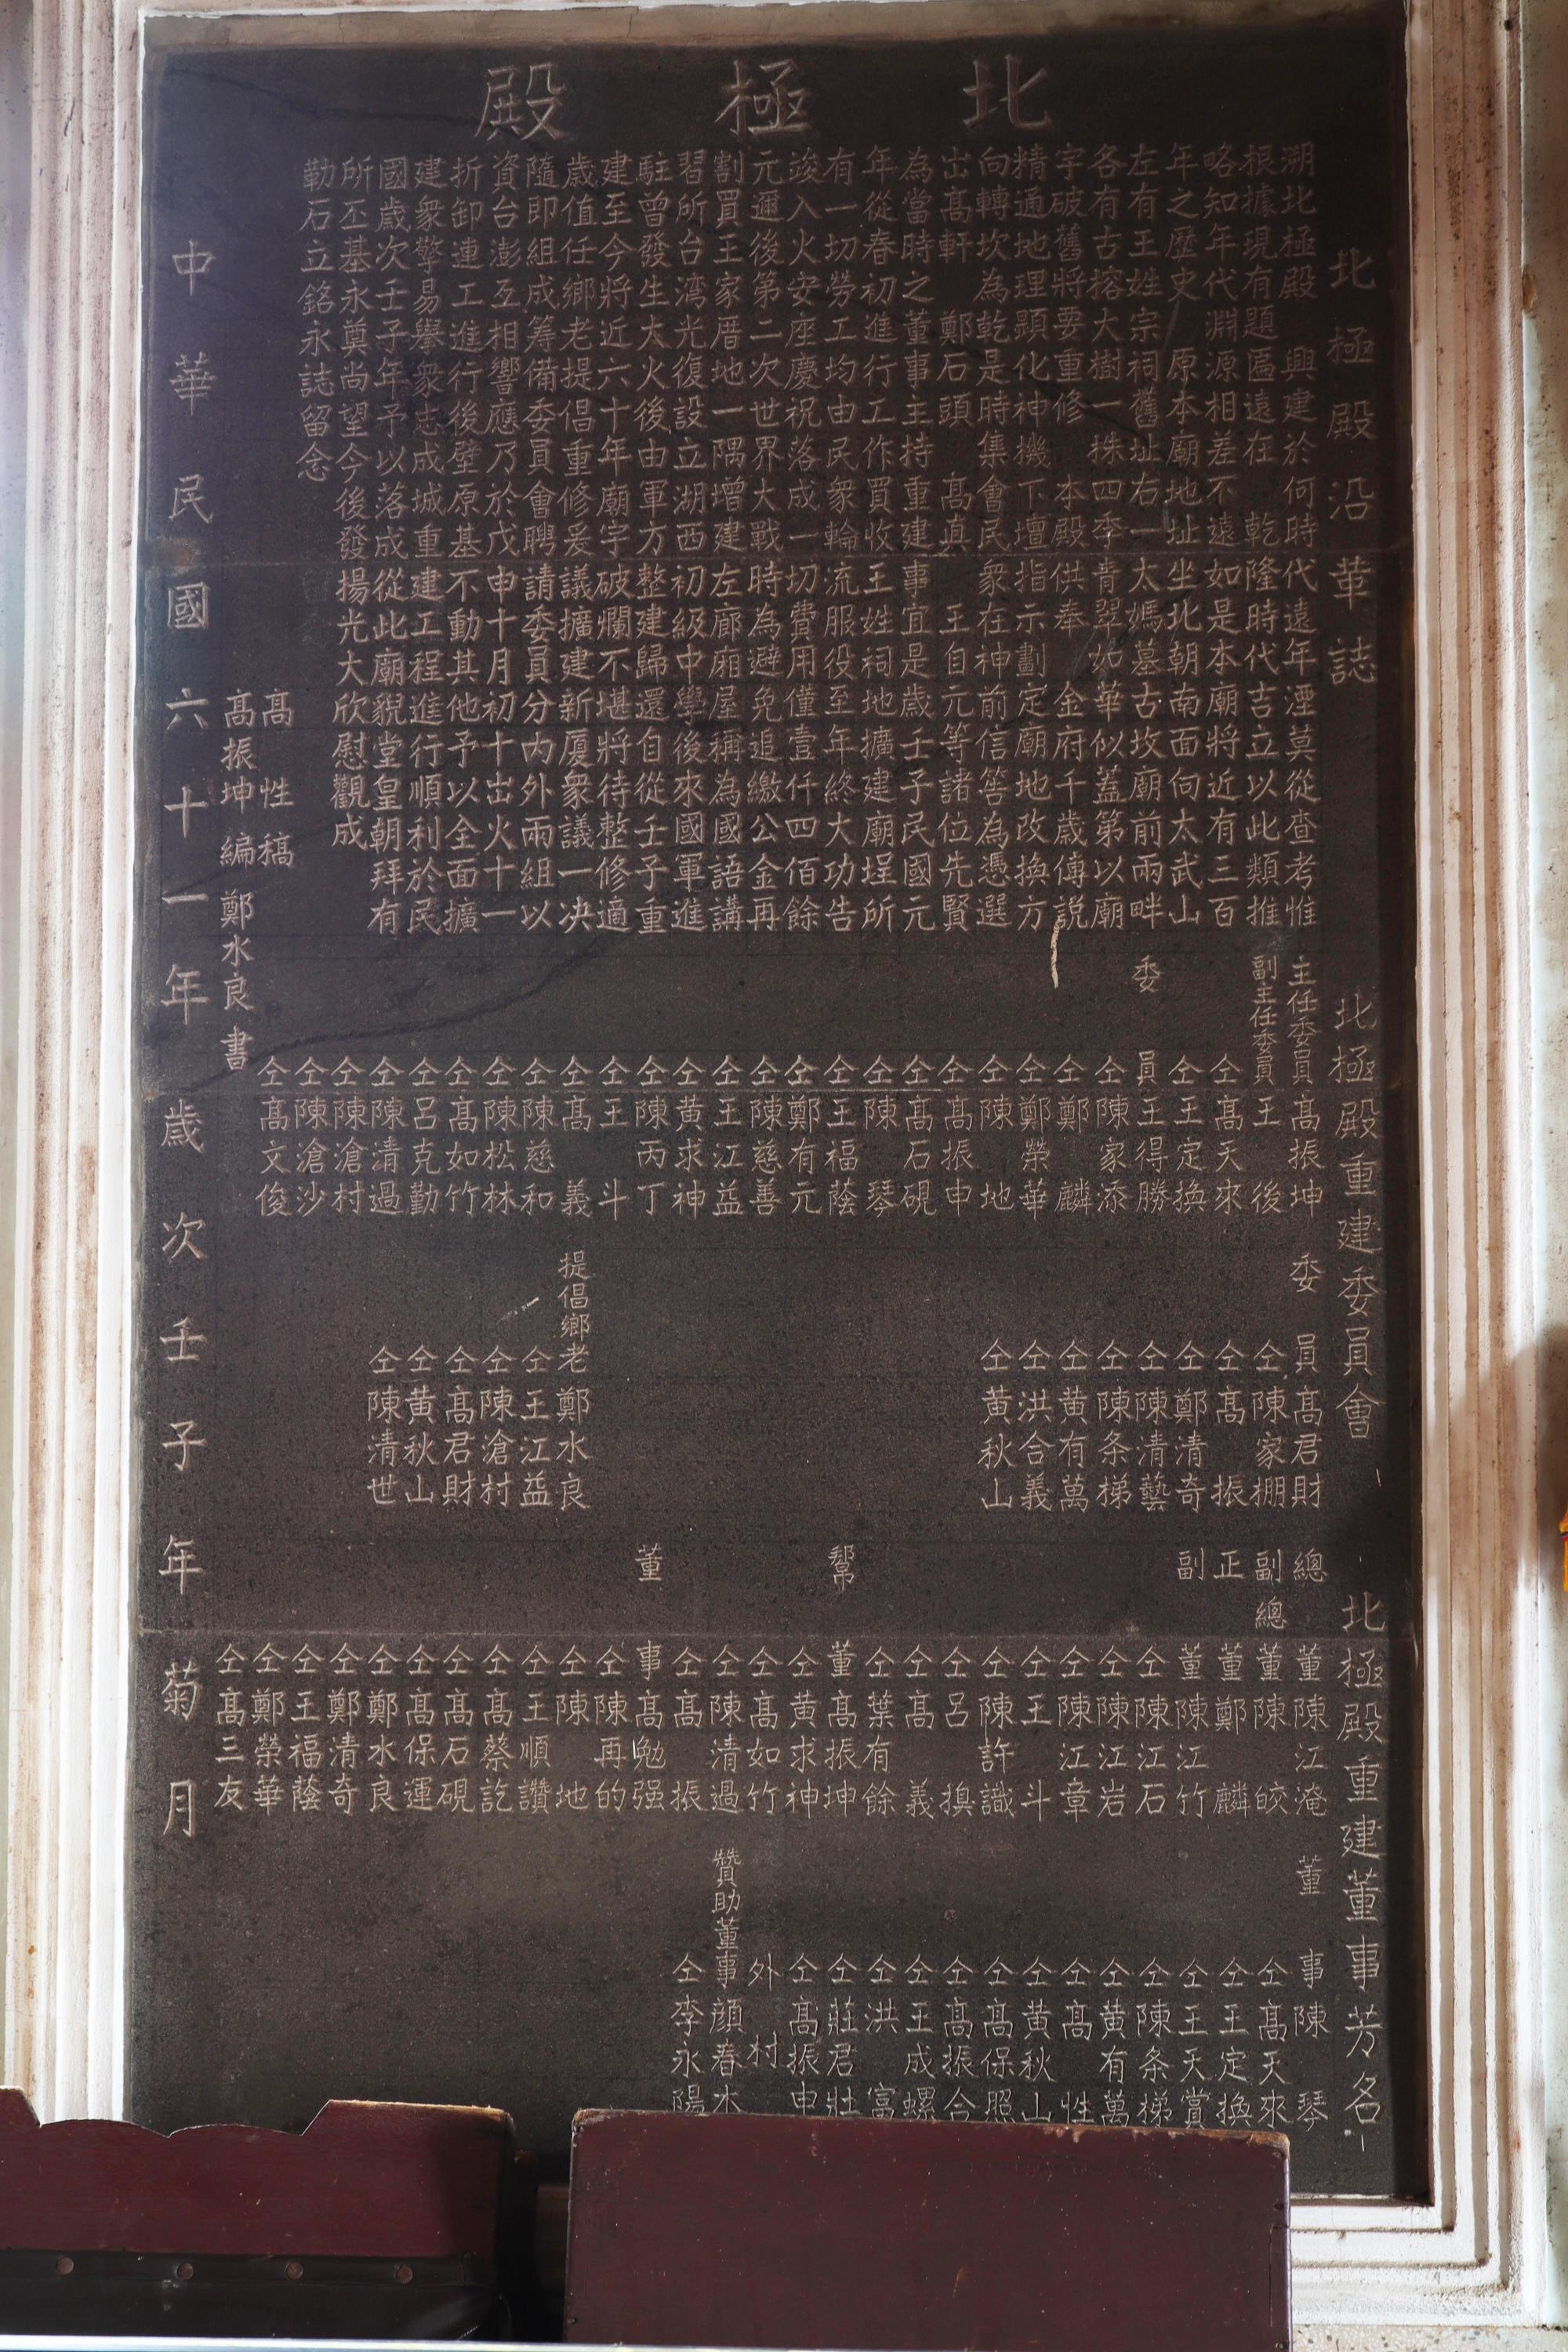 北極殿
北極殿沿革誌
溯北極殿　興建於何時代遠年湮莫從查考惟
根據現有題匾遠在　乾隆時代吉立以此類推
略知年代淵源相差不遠如是本廟將近有三百
年之歷史　原本廟地址坐北朝南面向太武山
左有王姓宗祠舊址右一太媽墓古坟廟前兩畔
各有古榕大樹一株四季青翠如華似蓋第以廟
宇破舊將要重修　本殿供奉　金府千歲傳說
精通地理顕化神機下壇指示劃定廟地改換方
向轉坎為乾是時集會民衆在神前信筶為憑選
出髙軒　鄭石頭　髙真　王自元等諸位先賢
為當時之董事主持重建事宜是歲壬子民國元
年從春初進行工作買收王姓祠地擴建廟埕所
有一切勞工均由民衆輪流服役至年終大功告
竣入火安座慶祝落成一切費用僅壹仟四佰餘
元邇後第二次世界大戰時為避免追繳公金再
割買王家厝地一隅增建左廊廂屋稱為國語講
習所台湾光復設立湖西初級中學後來國軍進
駐曾發生大火後由軍方整建歸還自從壬子重
建至今將近六十年廟宇破爛不堪將待整修適
歲值任鄉老提倡重修爰議擴建新厦衆議一决
隨即組成筹備委員會聘請委員分內外兩組以
資台澎互相響應乃於戊申十月初十出火十一
折卸連工進行後壁原基不動其他予以全面擴
建衆擎易舉衆志成城重建工程進行順利於民
國歲次壬子年予以落成從此廟貌堂皇朝拜有
所丕基永奠尚望今後發揚光大欣慰觀成
勒石立銘永誌留念
髙　性　稿
髙振坤編　鄭水良書
中華民國六十一年歲次壬子年菊月
北極殿重建委員會
主任委員髙振坤
副主任委員王　後
仝髙天來
仝王定換
委員王得勝
仝陳家添
仝鄭　麟
仝鄭榮華
仝陳　地
仝髙振申
仝髙石硯
仝陳　琴
仝王福蔭
仝鄭有元
仝陳慈善
仝王江益
仝黄求神
仝陳丙丁
仝王　斗
仝髙　義
仝陳慈和
仝陳松林
仝髙如竹
仝呂克勤
仝陳清過
仝陳滄村
仝陳滄沙
仝髙文俊
委員髙君財
仝陳家棚
仝髙　振
仝鄭清奇
仝陳清藝
仝陳条梯
仝黄有萬
仝洪合義
仝黄秋山
提倡鄉老鄭水良
仝王江益
仝陳滄村
仝髙君財
仝黄秋山
仝陳清世
北極殿重建董事芳名
總董陳江淹
副總董陳　皎
正董鄭　麟
副董陳江竹
仝陳江石
仝陳江岩
仝陳江章
仝王　斗
仝陳許識
仝呂
仝髙　義
仝葉有餘
幫董髙振坤
仝黄求神
仝髙如竹
仝陳清過
仝髙　振
董事髙勉强
仝陳再的
仝陳　地
仝王順讚
仝髙蔡訖
仝髙石硯
仝髙保運
仝鄭水良
仝鄭清奇
仝王福蔭
仝鄭榮華
仝髙三友
董事陳　琴
仝髙天來
仝王定換
仝王天賞
仝陳条梯
仝黄有萬
仝髙　性
仝黄秋山
仝髙保照
仝髙振合
仝王成螺
仝洪　富
仝莊君壯
仝髙振申
外村
贊助董事顏春木
仝李永陽